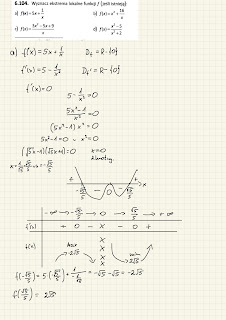 6.104. Wyznacz ekstrema lokalne funkcji f (jeśli istnieją):
a) f(x) = 5x + 1/x b) f(x) = x² + 16/x
c) d)
a) f(x) = 5x + 1/x D_f = R - {0}
f'(x) = 5 - 1/x² D_f' = R - {0}
f'(x) = 0
5 - 1/x² = 0
5x² - 1 / x² = 0
(5x² - 1) x² = 0
5x² - 1 = 0 ∨ x² = 0
(√5x - 1)(√5x + 1) = 0 x = 0
+ - 0 - + x
-∞ → -√5/5 → 0 → √5/5 → +∞
f'(x) + 0 - X - 0 +
f(x) max -2√5 X X X min 2√5
f(-√5/5) = 5·(-√5/5) + = -√5 - √5 = -2√5
f(√5/5) = 2√5